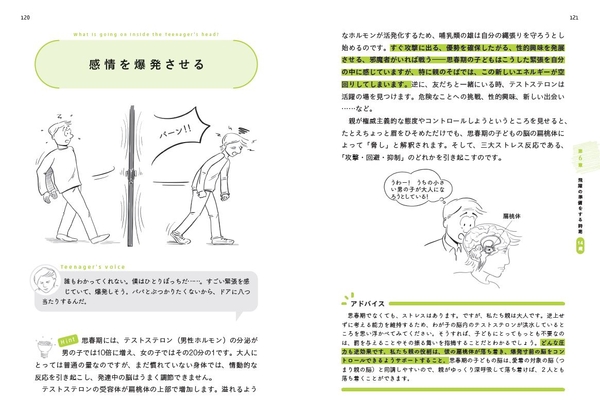 120
What is going on inside the teenager's head?
感情を爆発させる
バーン!!
Teenager's voice
誰もわかってくれない。僕はひとりぼっちだ……。すごい緊張を感
じていて、爆発しそう。パパとぶつかりたくないから、ドアに八つ
当たりするんだ。
Hint
思春期には、テストステロン（男性ホルモン）の分泌が
男の子では10倍に増え、女の子ではその20分の1です。大人に
とっては普通の量なのですが、まだ慣れていない身体では、情動的な
反応を引き起こし、発達中の脳はうまく調節できません。
テストステロンの受容体が扁桃体の上部で増加します。溢れるよう
121
なホルモンが活発化するため、哺乳類の雄は自分の縄張りを守ろうとし
始めるのです。すぐ攻撃に出る、優勢を確保したがる、性的興味を発展
させる、邪魔者がいれば戦う――思春期の子どもはこうした緊張を自分
の中に感じていますが、特に親のそばでは、この新しいエネルギーが空
回りしてしまいます。逆に、友だちと一緒にいる時、テストステロンは
活躍の場を見つけます。危険なことへの挑戦、性的興味、新しい出会い
……など。
親が権威主義的な態度やコントロールしようというところを見せると、
たとえちょっと眉をひそめただけでも、思春期の子どもの脳の扁桃体に
よって「脅し」と解釈されます。そして、三大ストレス反応である、
「攻撃・回避・抑制」のどれかを引き起こすのです。
うわー！ うちの小さ
い男の子が大人にな
ろうとしている！
扁桃体
アドバイス
思春期でなくても、ストレスはあります。ですが、私たち親は大人です。逆上せ
ずに考える能力を維持するため、わが子の脳内のテストステロンが洪水しているとこ
ろを思い浮かべてみてください。そうすれば、子どもにとってもっとも不要なの
は、罰を与えることややその振る舞いを指摘することだとわかるでしょう。どんな圧
力も逆効果です。私たち親の役割は、彼の扁桃体が落ち着き、爆発寸前の脳をコン
トロールできるようサポートすること。思春期の子どもの脳は、愛着の対象の脳（つ
まり親の脳）と同調しやすいので、親がゆっくり深呼吸して落ち着けば、2人とも
落ち着くことができます。
第5章
飛躍の準備をする時期
14歳